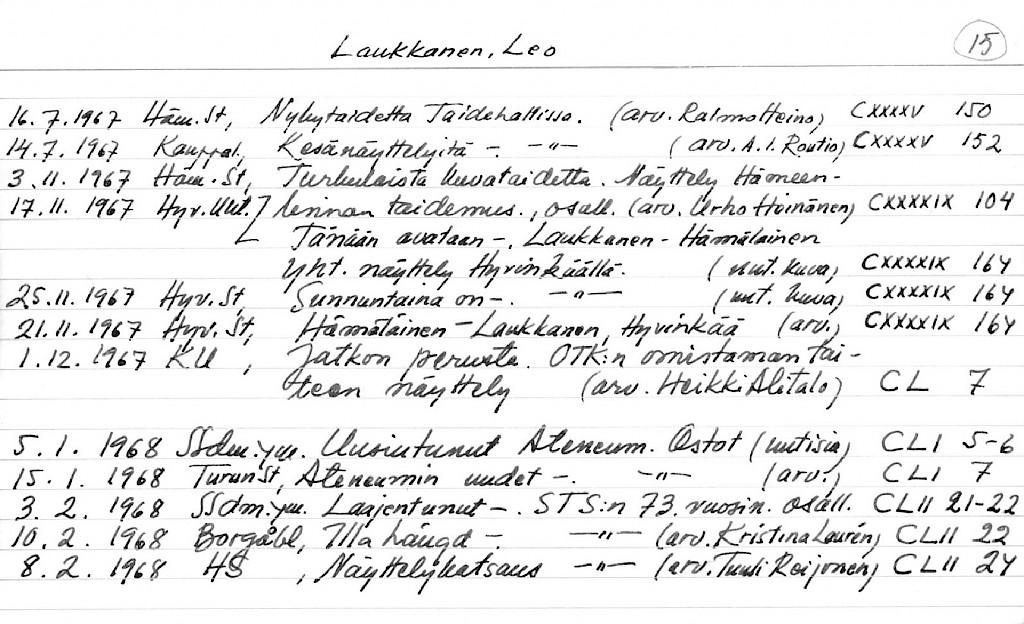 Laukkanen, Leo 15
16.7.1967 Häm.St, Nykytaidetta Taidehallissa. (arv. Raimo Heino) CXXXXV 150
14.7.1967 Kauppal., Kesänäyttelyitä -. -"- (arv. A.I. Routio) CXXXXV 152
3.11.1967 Häm.St, Turkulaista kuvataidetta. Näyttely Hämeen-
17.11.1967 Hyv.Uut. ] linnan taidemus., osall. (arv. Urho Heinänen) CXXXXIX 104
L Tänään avataan -, Laukkanen - Hämäläinen
yht. näyttely Hyvinkäällä. (uut. kuva) CXXXXIX 164
25.11.1967 Hyv.St, Sunnuntaina on -. -"- (uut. kuva) CXXXXIX 164
21.11.1967 Hyv.St, Hämäläinen - Laukkanen, Hyvinkää (arv.) CXXXXIX 164
1.12.1967 KU , Jatkon perusta. OTK:n omistaman tai-
teen näyttely (arv. Heikki Alitalo) CL 7
5.1.1968 SSdm:yw. Uusiutunut Ateneum. Ostot (uutisia) CLI 5-6
15.1.1968 TurunSt, Ateneumin uudet -. -"- (arv.) CLI 7
3.2.1968 SSdm:yw. Laajentunut -. STS:n 73. vuosin. osall. CLII 21-22
10.2.1968 Borgåbl, Illa hängd -. -"- (arv. Kristina Laurén) CLII 22
8.2.1968 HS , Näyttelykatsaus -"- (arv. Tuuli Reijonen) CLII 24